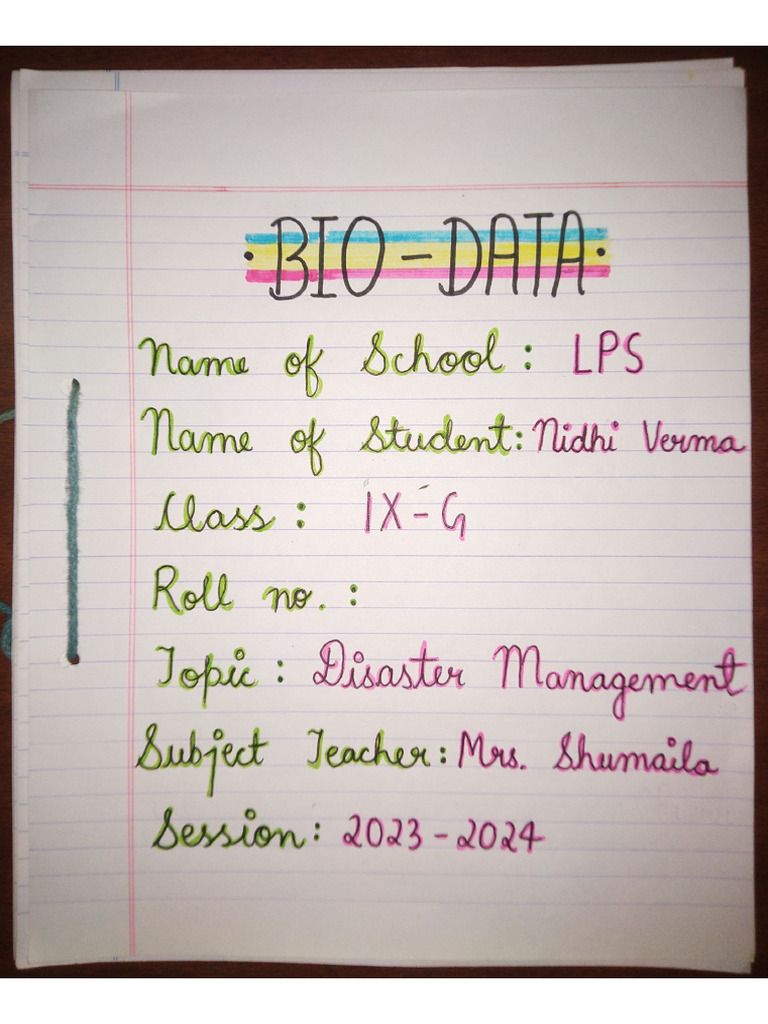 • BIO - DATA •
Name of School : LPS
Name of Student : Nidhi Verma
Class : IX - G
Roll no. :
Topic : Disaster Management
Subject Teacher : Mrs. Shumaila
Session : 2023 - 2024